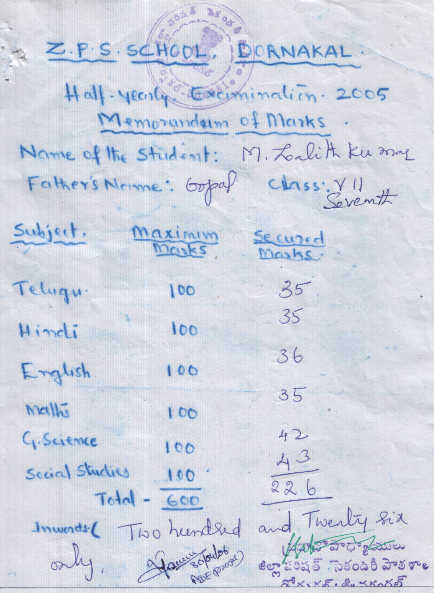 Z.P.S. SCHOOL, DORNAKAL.
Half-yearly Examination. 2005
Memorandum of Marks.
Name of the Student: M. Lalith Kumar
Father's Name: Gopal Class: VII
Seventh
Subject. Maximum Marks Secured Marks.
Telugu. 100 35
Hindi 100 35
English 100 36
Maths 100 35
G. Science 100 42
Social Studies 100 43
Total - 600 226
Inwords ( Two hundred and Twenty six
only.
ప్రధానోపాధ్యాయులు
జిల్లా పరిషత్ సెకండరీ పాఠశాల